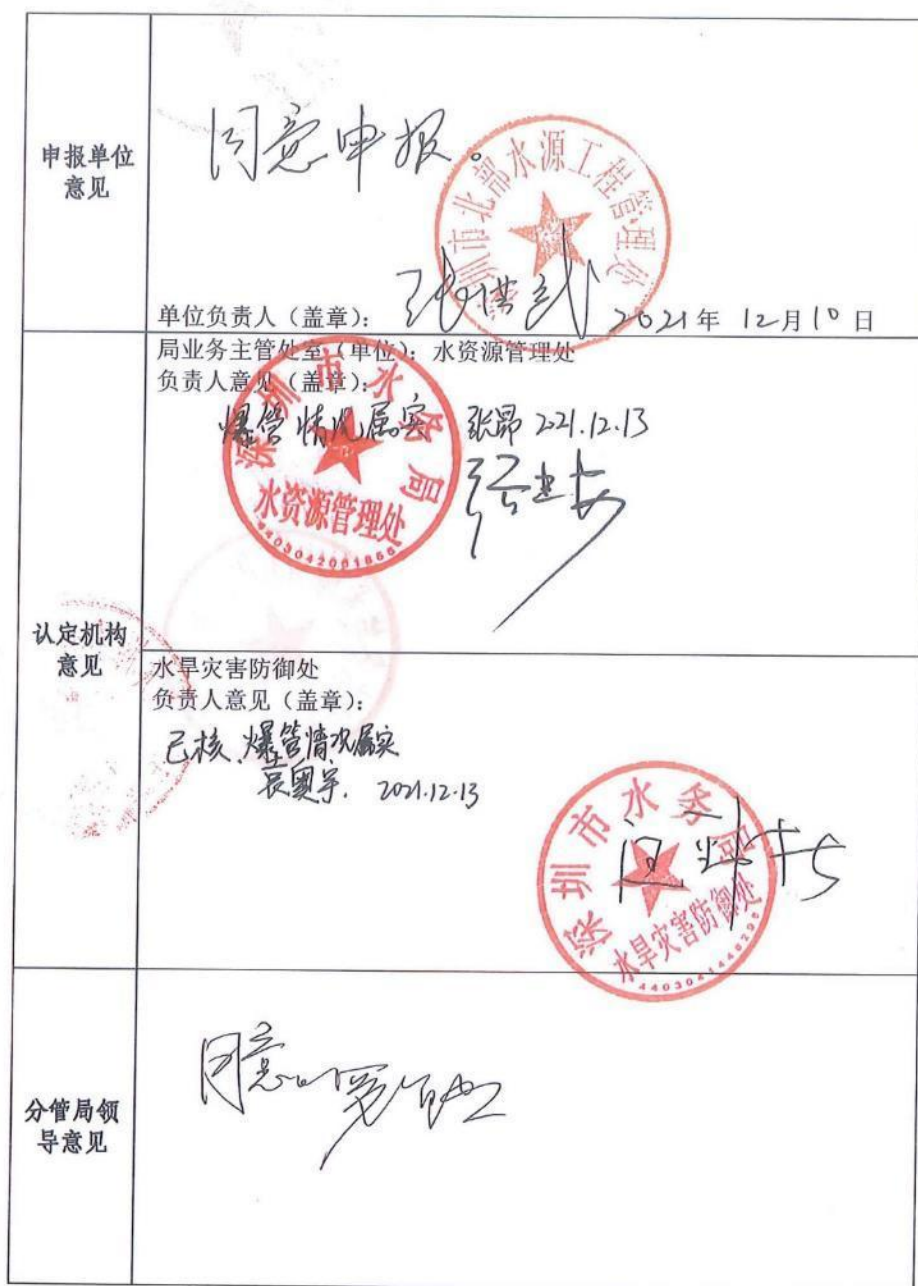 申报单位
意见
同意申报。
深圳市北部水源工程管理处
单位负责人（盖章）：
2021年 12月10日
局业务主管处室（单位）：水资源管理处
负责人意见（盖章）：
爆管情况属实 张昂 2021.12.13
深圳市水务局
水资源管理处
认定机构
意见
水旱灾害防御处
负责人意见（盖章）：
已核、爆管情况属实
2021.12.13
深圳市水务局
水旱灾害防御处
分管局领
导意见
同意